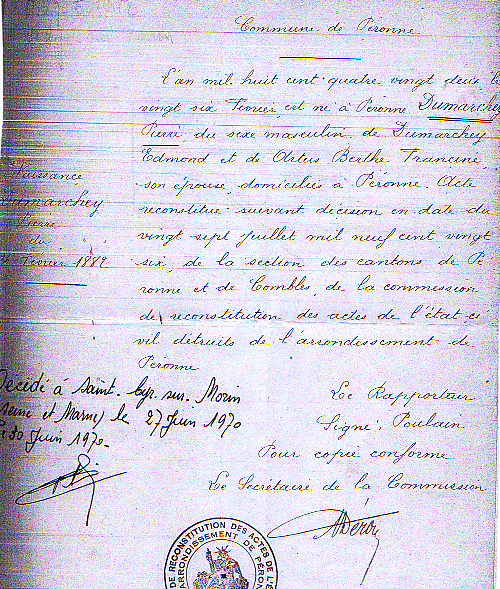 Commune de Péronne
L'an mil huit cent quatre vingt deux, le
vingt six Février, est né à Péronne Dumarchey
Pierre, du sexe masculin, de Dumarchey
Edmond et de Artus Berthe Francine,
son épouse, domiciliés à Péronne. Acte
reconstitué suivant décision en date du
vingt sept Juillet mil neuf cent vingt
six, de la section des cantons de Pé
ronne et de Combles, de la commission
de reconstitution des actes de l'état ci
vil détruits de l'arrondissement de
Péronne
Naissance
Dumarchey
Pierre
du
Février 1882
Le Rapporteur
Signé: Poulain
Pour copie conforme
Le Secrétaire de la Commission
Décédé à Saint-Cyr-sur-Morin
(Seine et Marne) le 27 Juin 1970
le 30 Juin 1970-
DE RECONSTITUTION DES ACTES DE L'É
ARRONDISSEMENT DE PÉRON